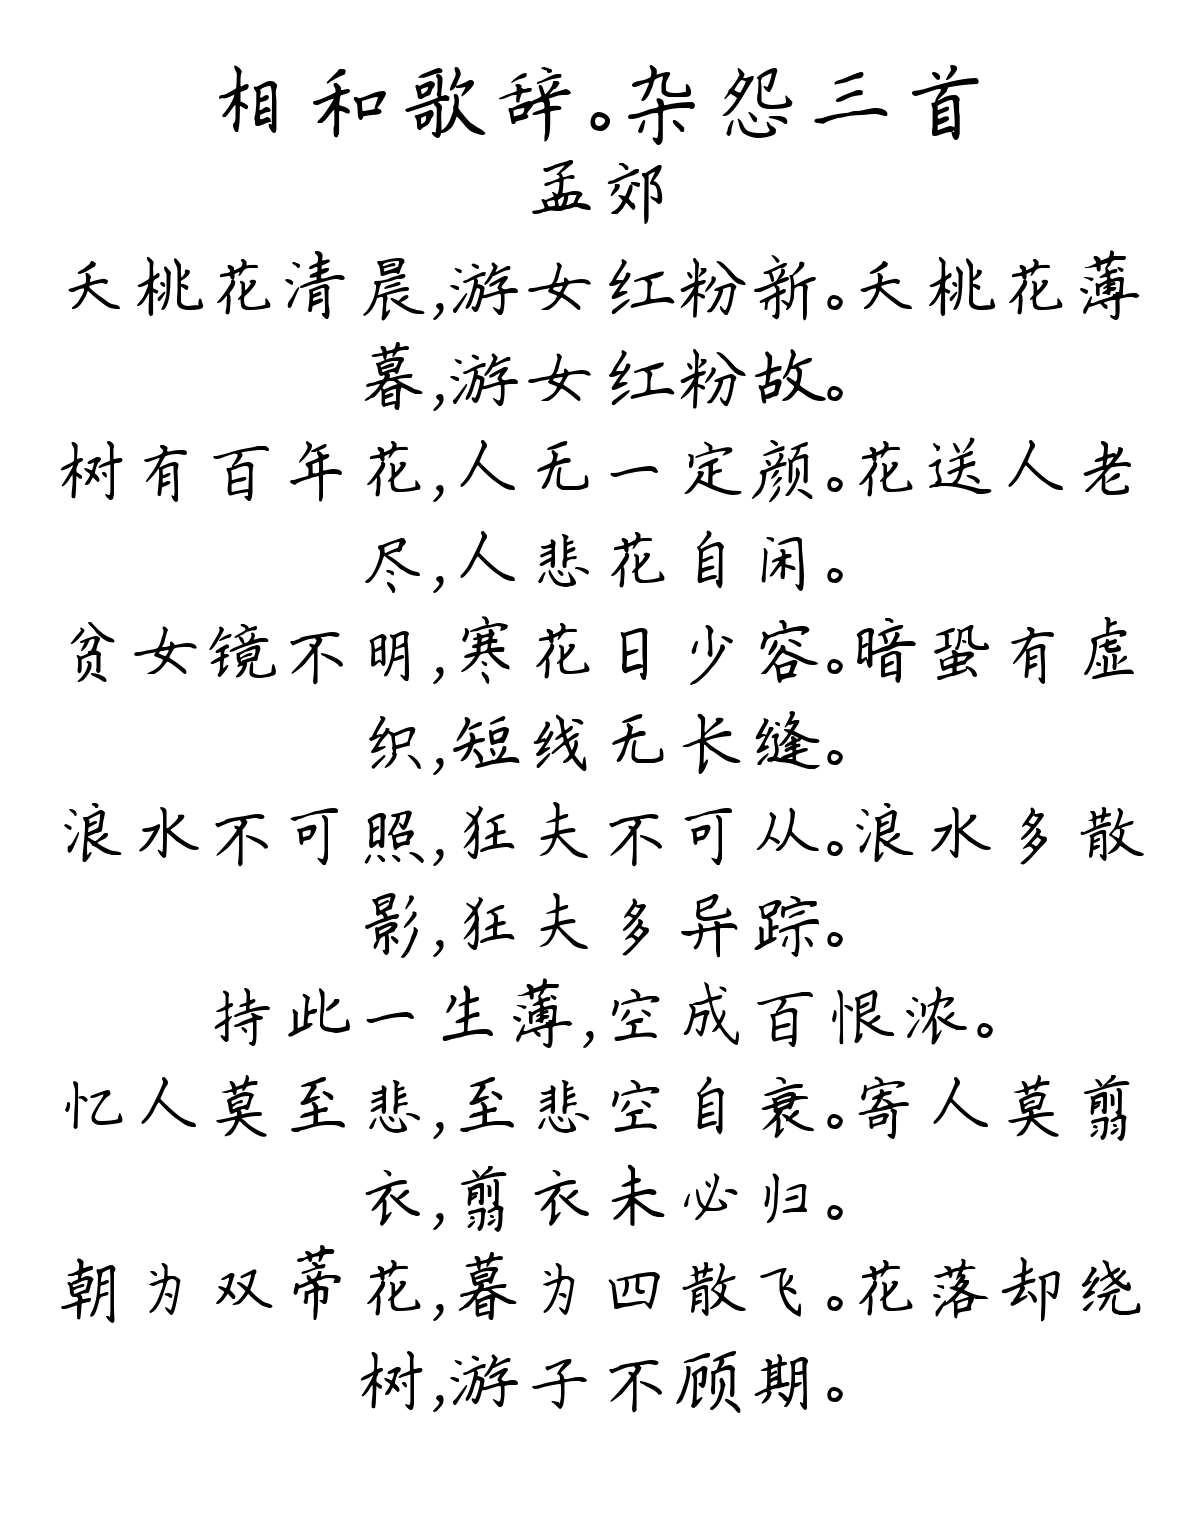 相和歌辞。杂怨三首
孟郊
夭桃花清晨,游女红粉新。夭桃花薄
暮,游女红粉故。
树有百年花,人无一定颜。花送人老
尽,人悲花自闲。
贫女镜不明,寒花日少容。暗蛩有虚
织,短线无长缝。
浪水不可照,狂夫不可从。浪水多散
影,狂夫多异踪。
持此一生薄,空成百恨浓。
忆人莫至悲,至悲空自衰。寄人莫翦
衣,翦衣未必归。
朝为双蒂花,暮为四散飞。花落却绕
树,游子不顾期。